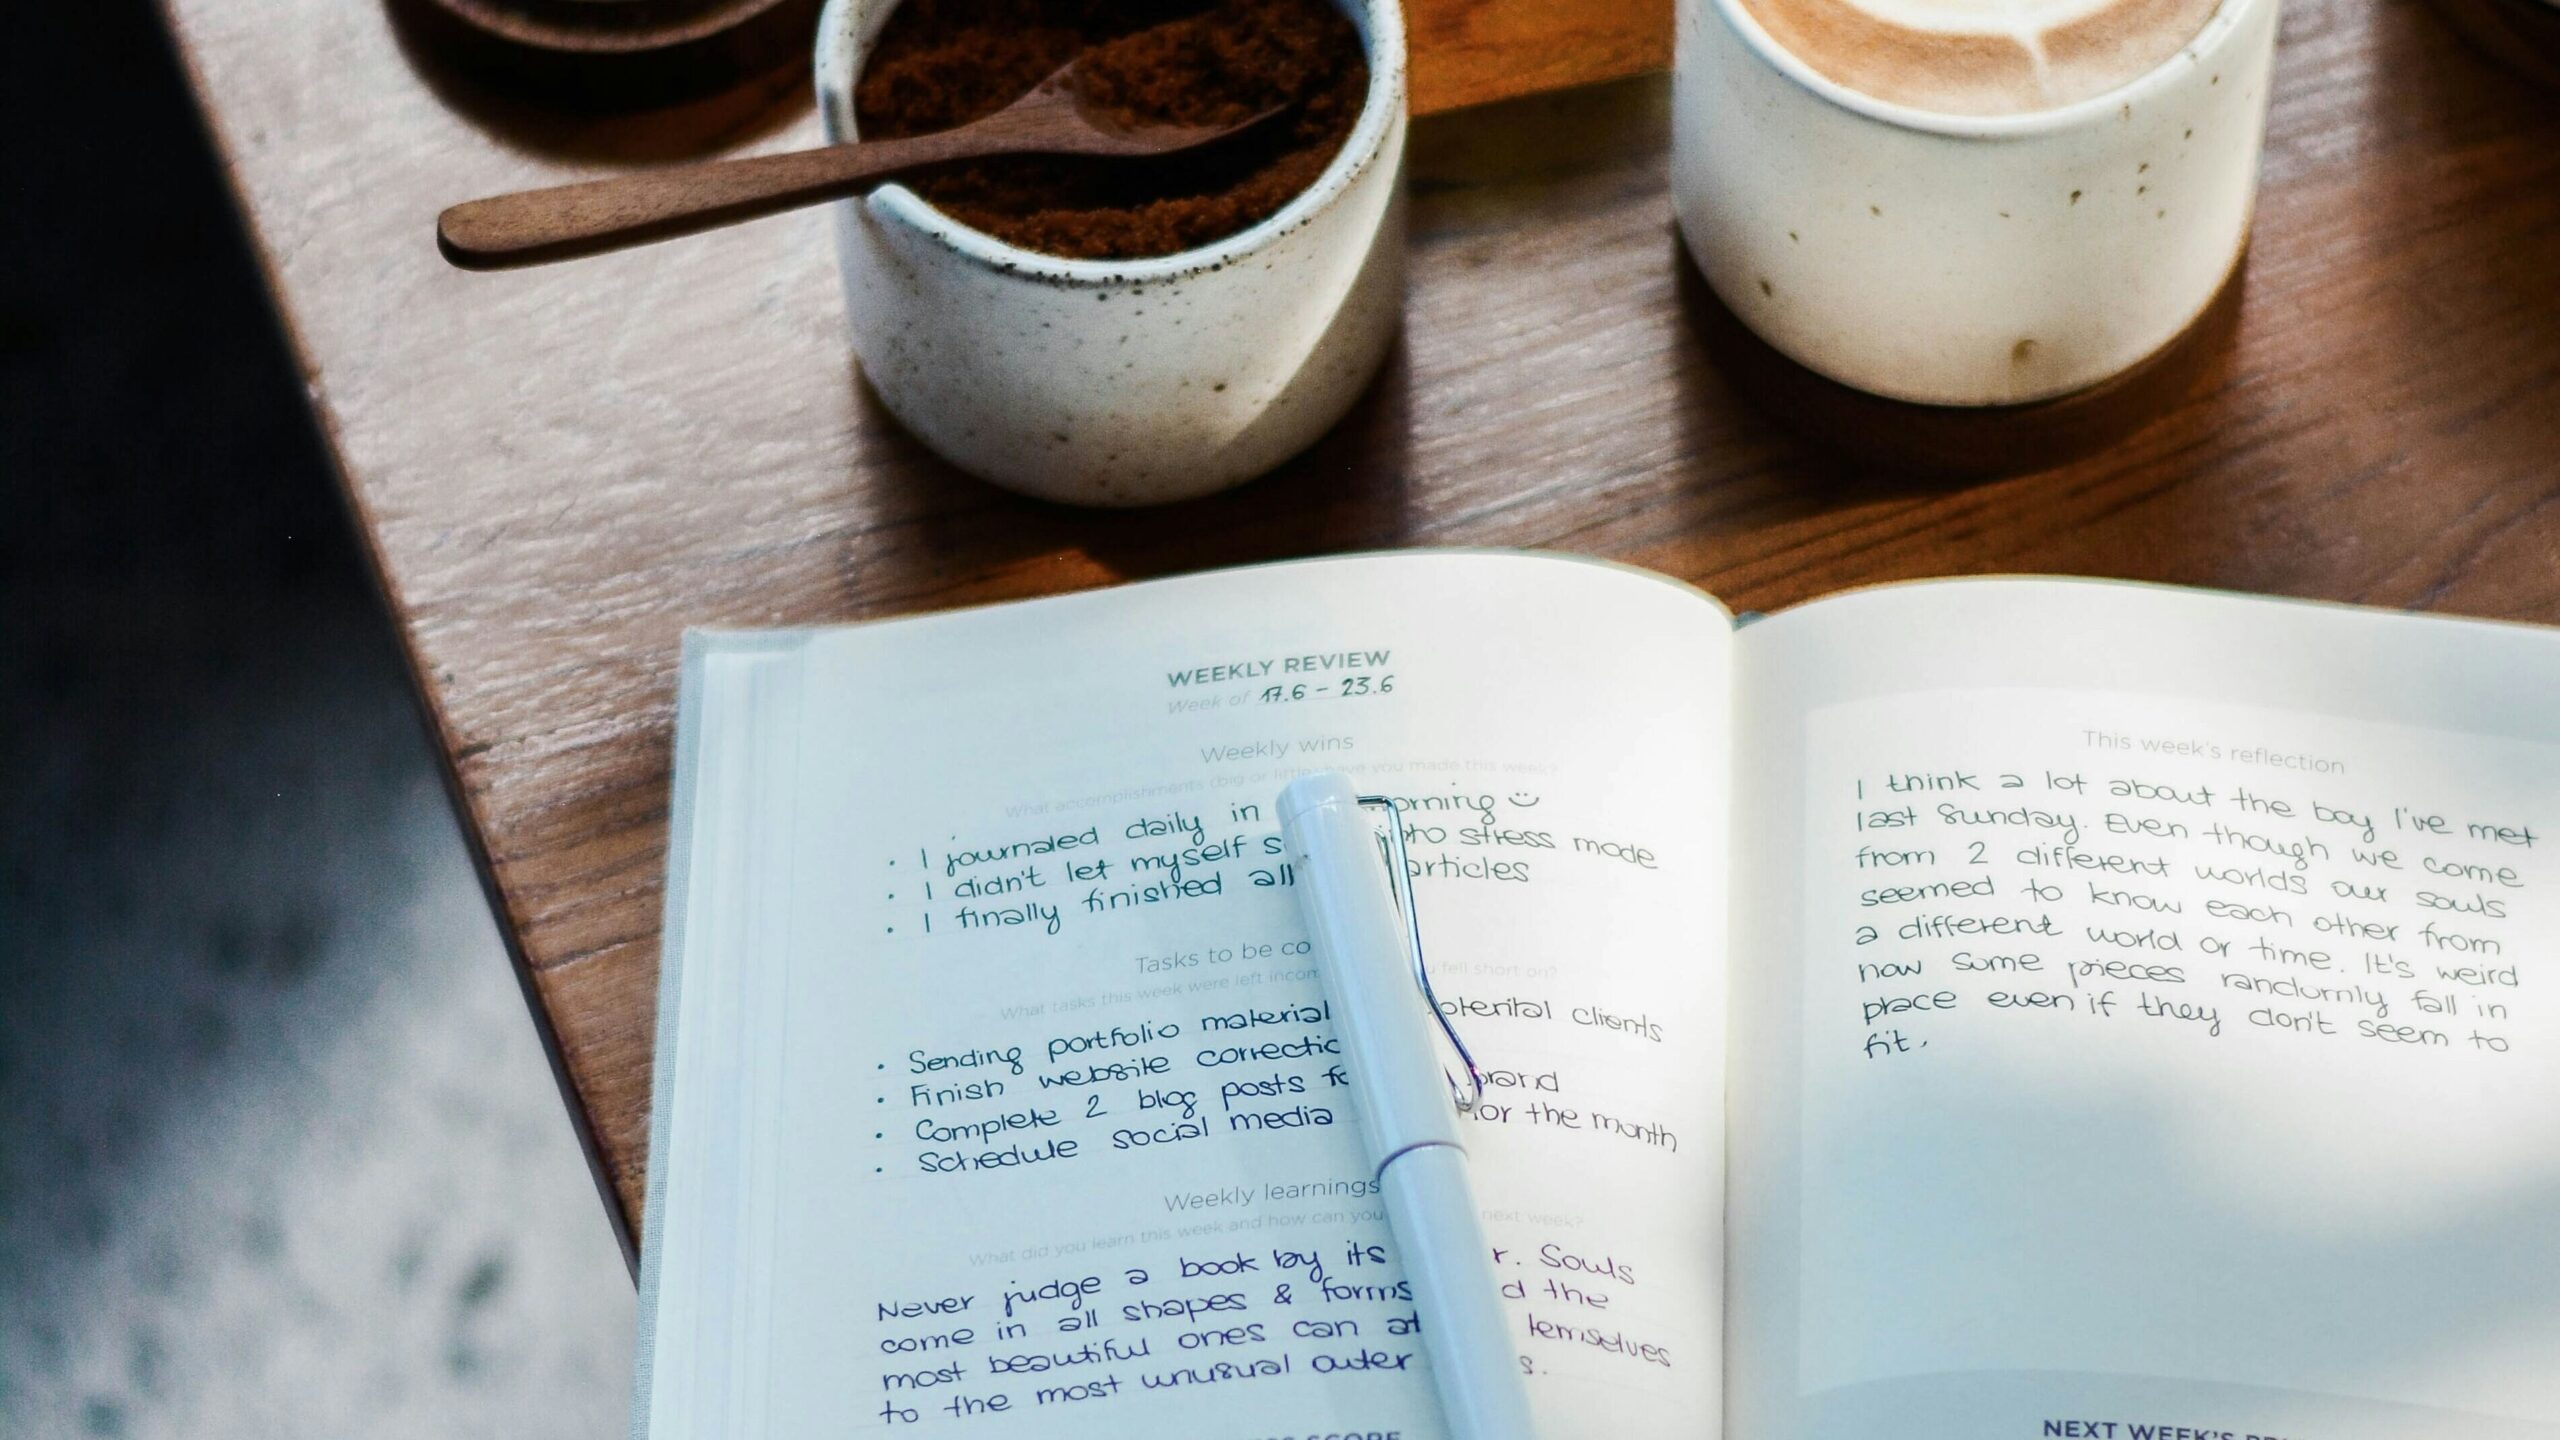 WEEKLY REVIEW
Week of 17.6 - 23.6
Weekly wins
What accomplishments (big or little have you made this week?
I journaled daily in morning
I didn't let myself into stress mode
I finally finished all articles
Tasks to be
What tasks this week were left fell short on?
Sending portfolio material potenital clients
Finish website
Complete 2 blog posts brand
Schedule social media for the month
Weekly learnings
What did you learn this week and how can you next week?
Never judge a book by its Souls
come in all shapes & forms the
most beautiful ones can temselves
to the most unusual outer
SCORE
This week's reflection
I think a lot about the boy I've met
last Sunday. Even though we come
from 2 different worlds our souls
seemed to know each other from
a different world or time. It's weird
how some pieces randomly fall in
place even if they don't seem to
fit.
NEXT WEEK'S